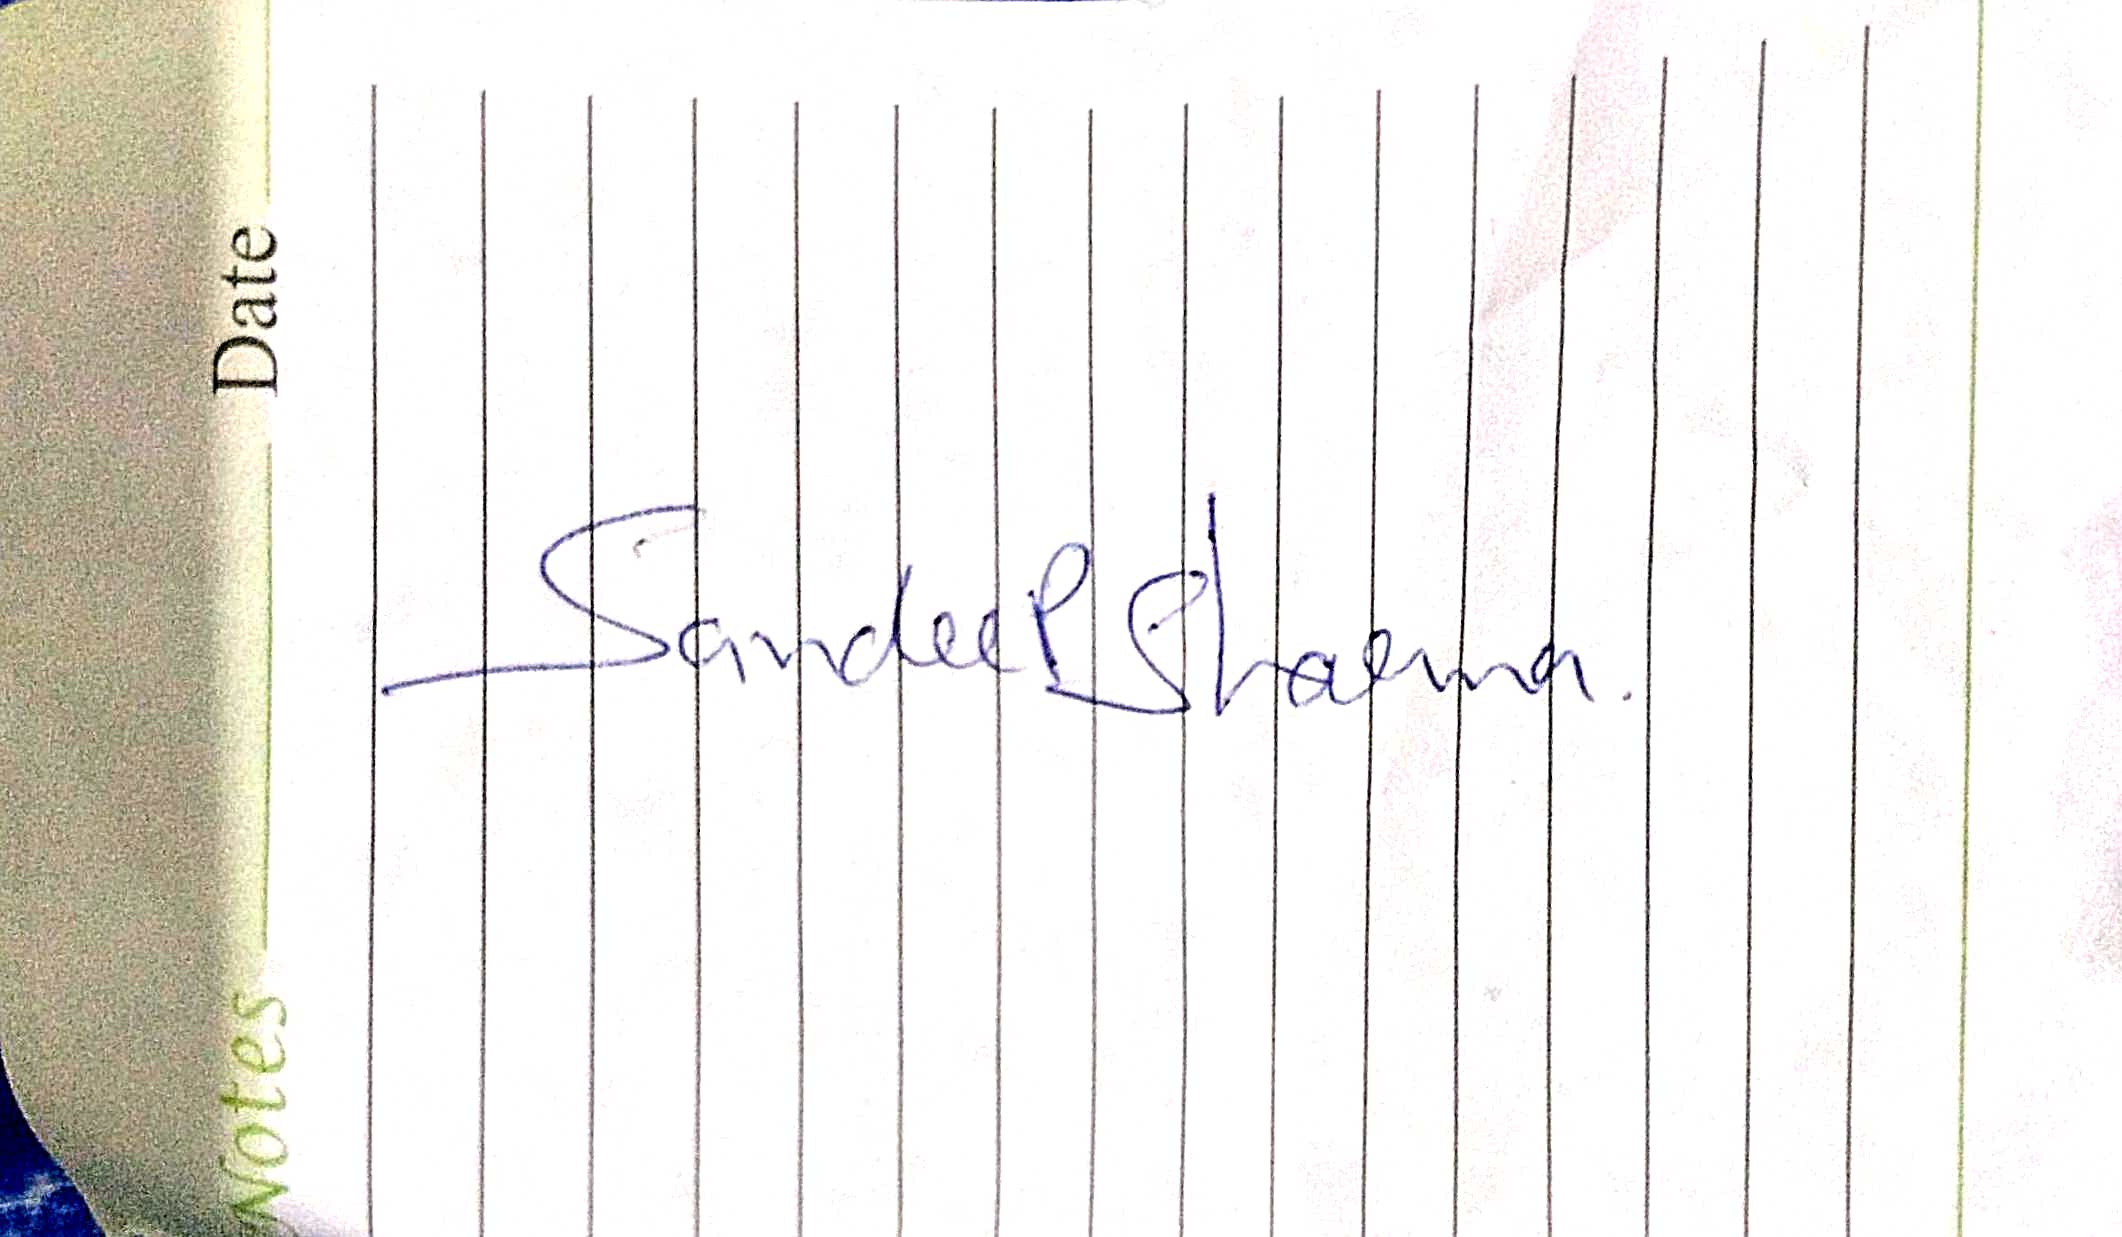 Date
Notes
Sandeep Sharma.